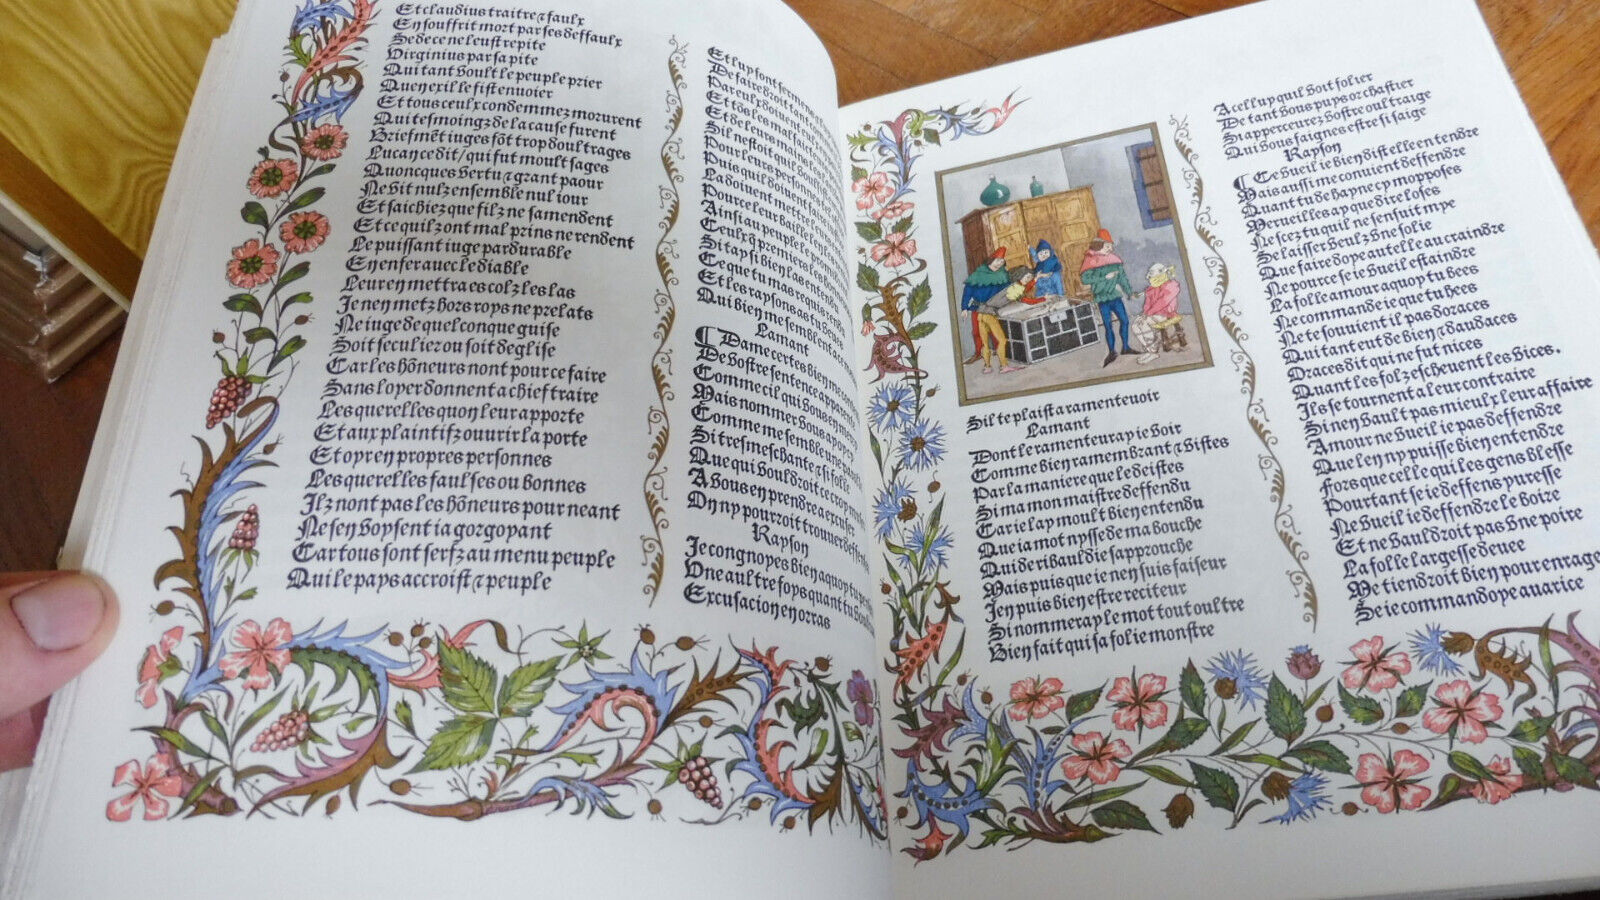 Et claudius traitre & faulx
En souffrit mort par ses deffaulx
Se de ce ne leust repite
Virginius par sa pite
Qui tant voult le peuple prier
Quen exil le fist envoier
Et tous ceulx condemnez morurent
Qui tesmoingz de la cause furent
Brief mēt iuges fōt trop doultrages
Lucan ce dit / qui fut moult sages
Quoncques vertu & grant paour
Ne vit nulz ensemble nul iour
Et saichiez que silz ne samendent
Et ce quilz ont mal prins ne rendent
Le puissant iuge pardurable
En enfer avec le diable
Leur en mettra es colz les las
Je nen metz hors roys ne prelats
Ne iuge de quelconque guise
Soit seculier ou soit deglise
Car les hōneurs nont pour ce faire
Sans loyer donnent a chief traire
Les querelles quon leur apporte
Et aux plaintifz ouvrir la porte
Et oyr en propres personnes
Les querelles faulses ou bonnes
Ilz nont pas les hōneurs pour neant
Ne sen voysent ia gorgoyant
Car tous sont serfz au menu peuple
Qui le pays accroist & peuple
Et luy font
De faire droit tant
Par eulx doivent
Et des malfaicteurs
Et de leurs mains
Sil nestoit quil
Pour leurs personnes
Puis quil doivent
La doivent mettre
Pour ce leur baillent
Ainsi au peuple le promirent
Ceulx q̄ premiers
Si tay si bien
Ce que tu mas requis
Et les raysons as tu
Qui bien me semblent a ce
Lamant
Dame certes bien me
De vostre sentence
Comme cil qui vous en mercy
Mais nommer vous
Comme me semble une
Si tresmeschante & si folle
Que qui vouldroit ce
A vous en prendre a excuser
On ny pourroit trouver deffense
Rayson
Je congnoys bien a quoy tu
Une aultre foys quant tu
Excusacion en orras
Sil te plaist a ramentevoir
Lamant
Dont le ramenteuray ie voir
Comme bien ramembrant & vistes
Par la maniere que le distes
Si ma mon maistre deffendu
Car ie lay moult bien entendu
Que ia mot nysse de ma bouche
Qui de ribauldie sapprouche
Mais puis que ie nen suis faiseur
Jen puis bien estre reciteur
Si nommeray le mot tout oultre
Bien fait qui sa folie monstre
A celluy quil voit folier
De tant vous puys or chastier
Si appercevrez vostre oultraige
Qui vous faignes estre si saige
Rayson
Ce vueil ie bien dist elle entendre
Mais aussi me convient deffendre
Quant tu de hayne cy mopposes
Merveilles ay que dire loses
Ne scez tu quil ne sensuit mye
Se laisser veulz une folie
Que faire doye autelle ou craindre
Ne pource se ie vueil estaindre
La folle amour a quoy tu bees
Ne commande ie que tu hees
Ne te souvient il pas doraces
Qui tant eut de bien & daudaces
Oraces dit qui ne fut nices
Quant les folz eschevent les vices.
Ilz se tournent a leur contraire
Si nen vault pas mieulx leur affaire
Amour ne vueil ie pas deffendre
Que len ny puisse bien entendre
Fors que celle qui les gens blesse
Pourtant se ie deffens yvresse
Ne vueil ie deffendre le boire
Et ne vauldroit pas une poire
La folle largesse devee
Me tiendroit bien pour enrage
Se ie commandoye avarice